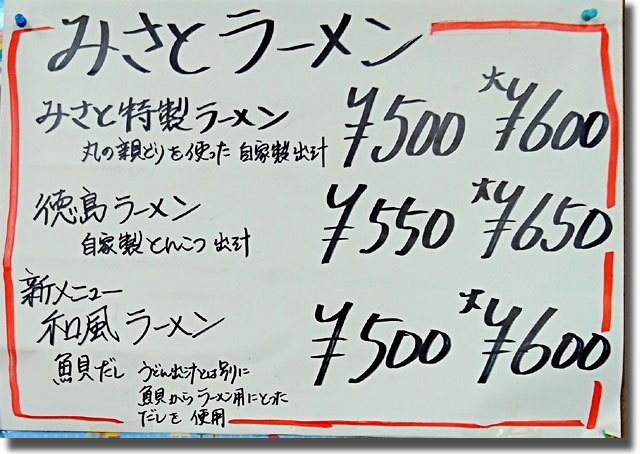 みさとラーメン
みさと特製ラーメン ¥500 大¥600
丸の親どりを使った 自家製出汁
徳島ラーメン ¥550 大¥650
自家製とんこつ出汁
新メニュー
和風ラーメン ¥500 大¥600
魚貝だし うどん出汁とは別に
魚貝からラーメン用にとった
だしを使用